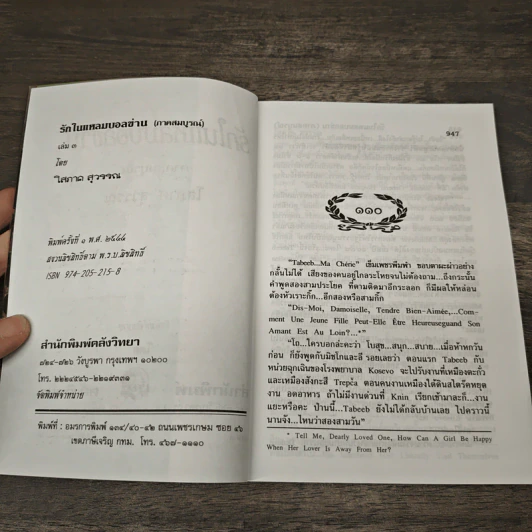 รักในแหลมบอลข่าน (ภาคสมบูรณ์)
เล่ม ๓
โดย
โสภาค สุวรรณ
พิมพ์ครั้งที่ ๑ พ.ศ. ๒๕๔๔
สงวนลิขสิทธิ์ตาม พ.ร.บ.ลิขสิทธิ์
ISBN 974-205-215-8
สำนักพิมพ์คลังวิทยา
๗๒๔-๗๒๖ วังบูรพา กรุงเทพฯ ๑๐๒๐๐
โทร. ๒๒๒๔๔๔๖-๒๒๑๗๙๓๑
จัดพิมพ์จำหน่าย
พิมพ์ที่ : อมรการพิมพ์ ๑๓๔/๔๐-๔๒ ถนนเพชรเกษม ซอย ๔๖
เขตภาษีเจริญ กทม. โทร. ๔๖๗-๑๑๑๐
947
๑๑๐
"Tabeeb...Ma Chérie" เข็มเพชรพึมพำ ขอบตาผะผ่าวอย่าง
กลั้นไม่ได้ เสียงของคนอยู่ไกลระโหยจนไม่ต้องถาม...ถึงกระนั้น
คำพูดสองสามประโยค ที่ตามติดมาอีกระลอก ก็มีผลให้หล่อน
ต้องหัวเราะกิ๊ก...อีกสองหรือสามกิ๊ก
"Dis-Moi, Damoiselle, Tendre Bien-Aimée,...Com-
ment Une Jeune Fille Peut-Elle Être Heureseguand Son
Amant Est Au Loin?...*"
"โอ...ใครบอกล่ะคะว่า โบสุข...สนุก...สบาย...เมื่อห้าหกวัน
ก่อน ก็ยังพูดกับมิชโกและลี รอยเลยว่า ตอนแรก Tabeeb กับ
หน่วยฉุกเฉินของโรงพยาบาล Kosevo จะไปรับงานที่เหมืองตะกั่ว
และเหมืองสังกะสี Trepča ตอนคนงานเหมืองใต้ดินสไตร๊คหยุด
งาน อดอาหาร ถ้าไม่มีงานด่วนที่ Knin เรียกเข้ามาละก็...งาน
แยะหรือคะ ป่านนี้...Tabeeb ยังไม่ได้กลับบ้านเลย ไปคราวนี้
นานจัง...ไหนว่าสองสามวัน"
* Tell Me, Dearly Loved One, How Can A Girl Be Happy
When Her Lover Is Away From Her?